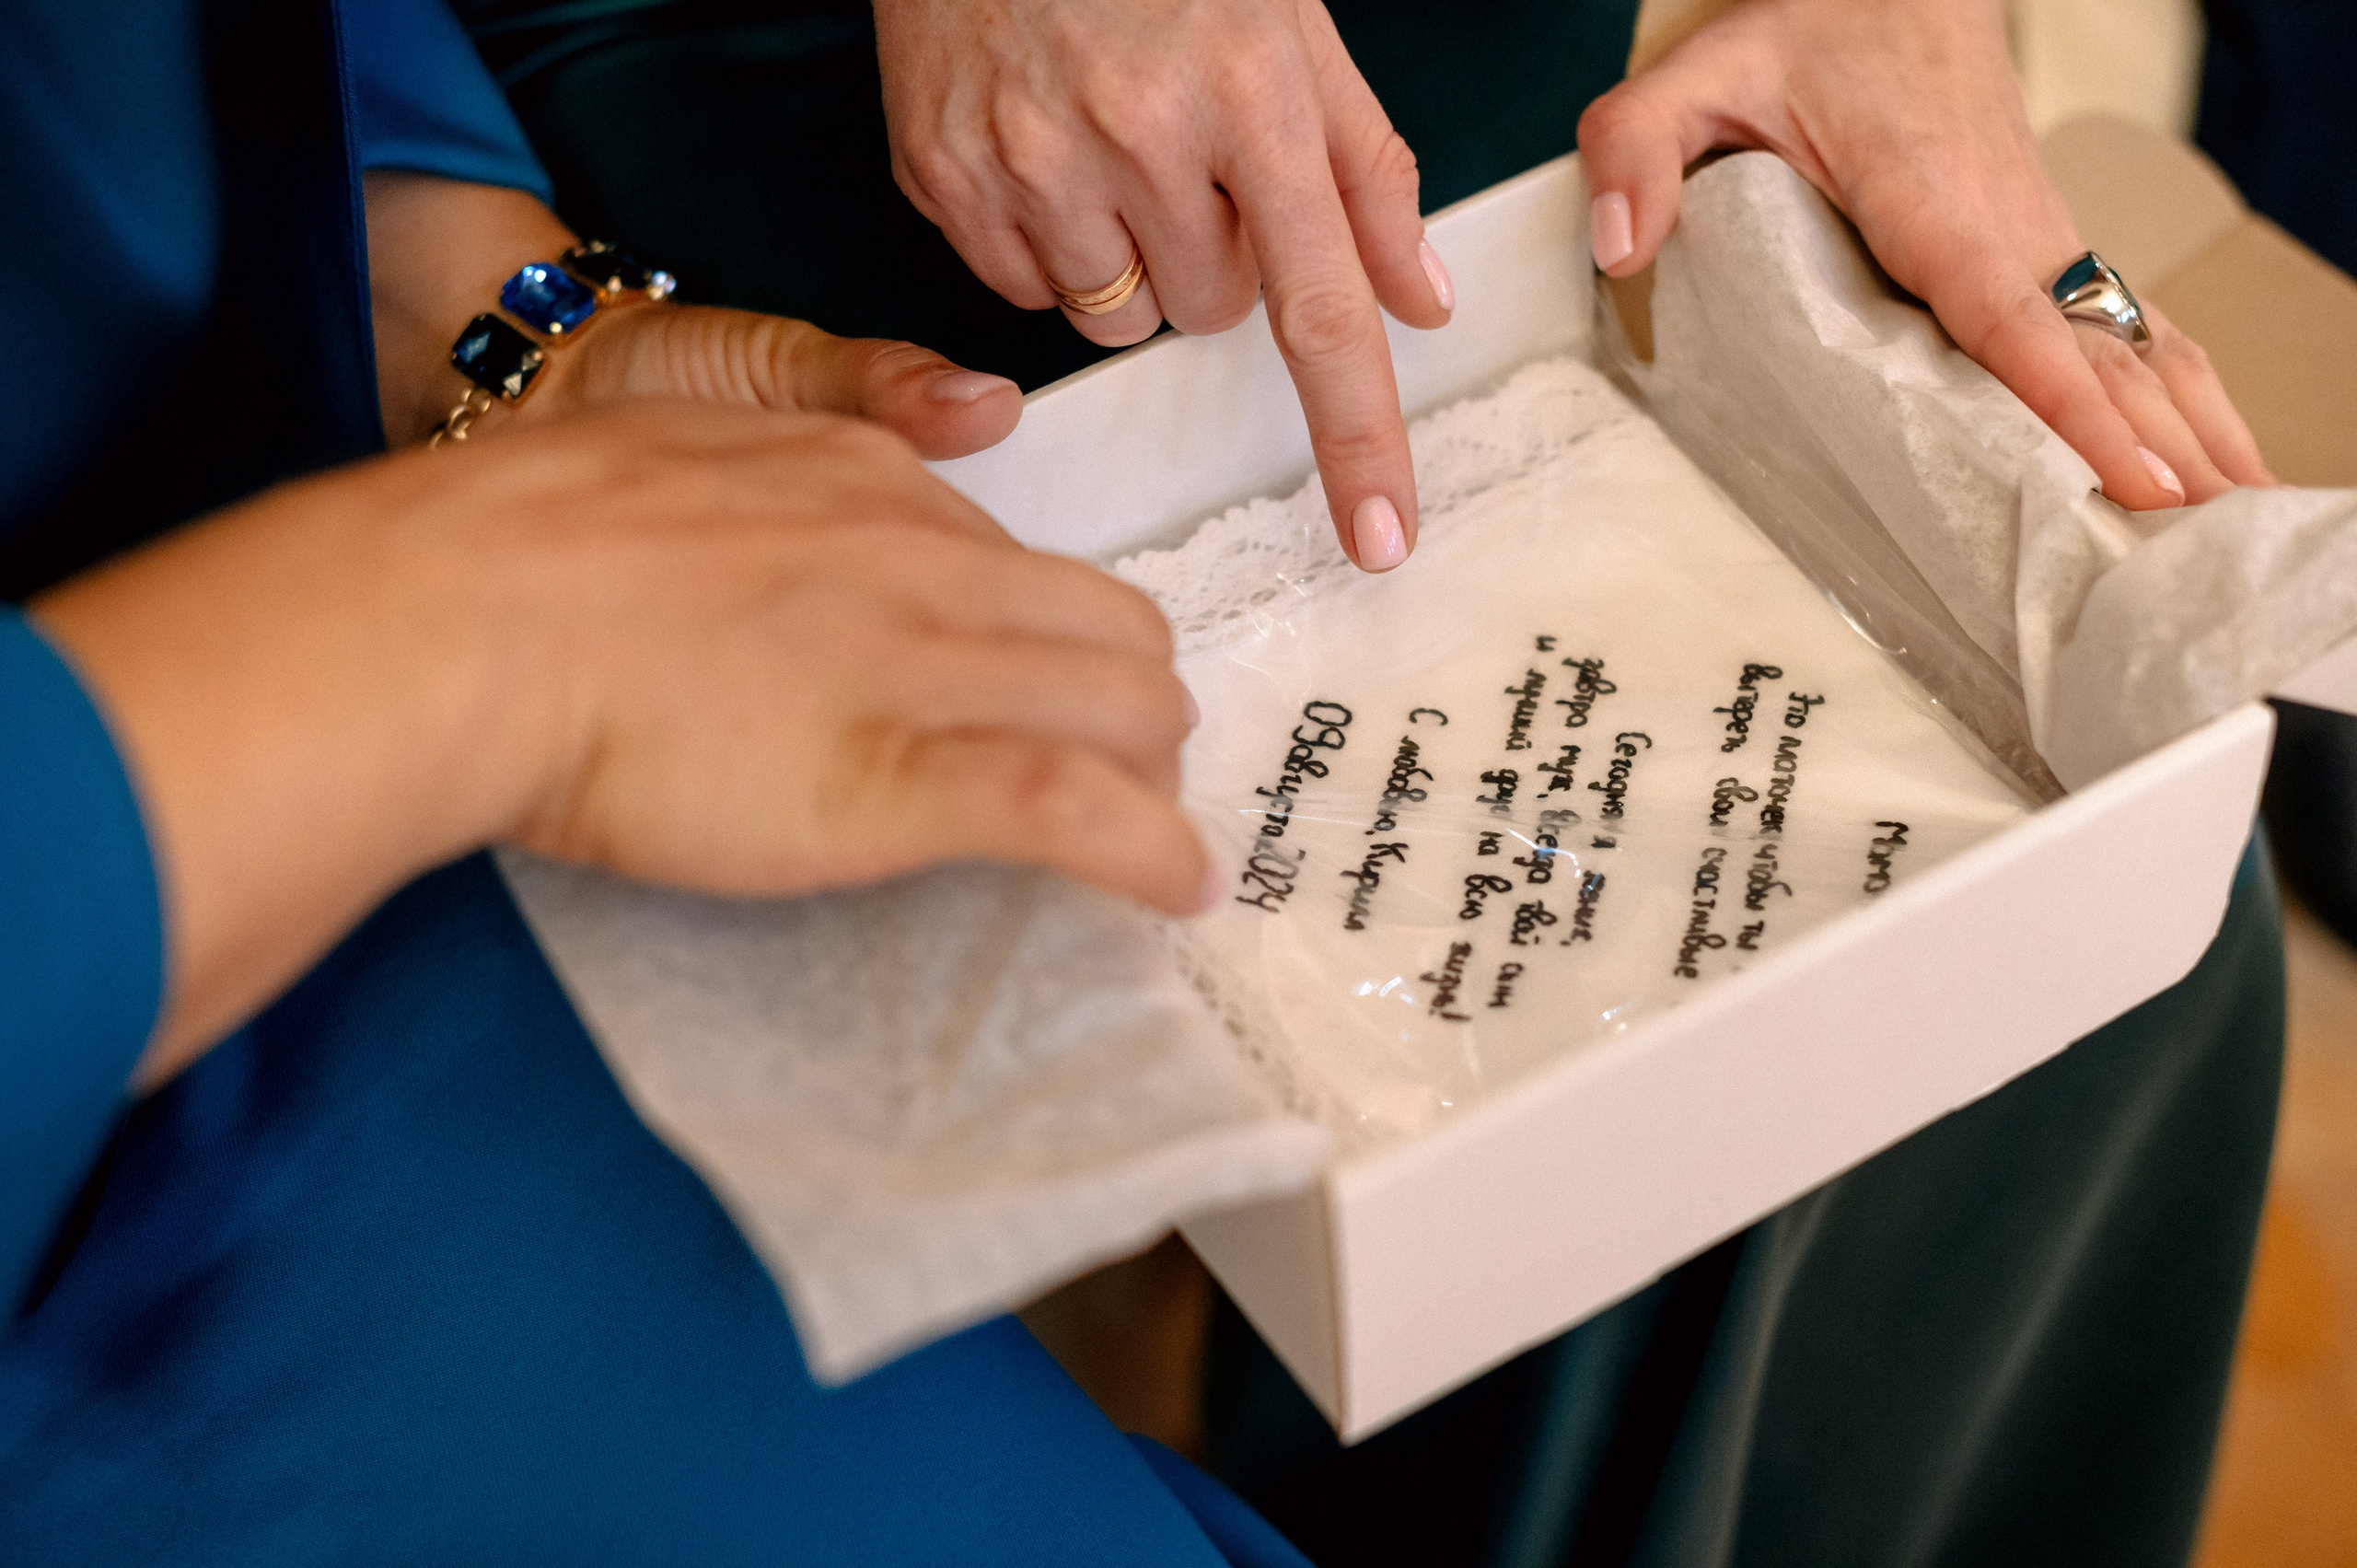 Мама
Это платочек чтобы ты
вытереть свои счастливые
Сегодня я жених,
завтра муж, всегда твой сын
и лучший друг на всю жизнь!
С любовью, Кирилл
09 августа 2024